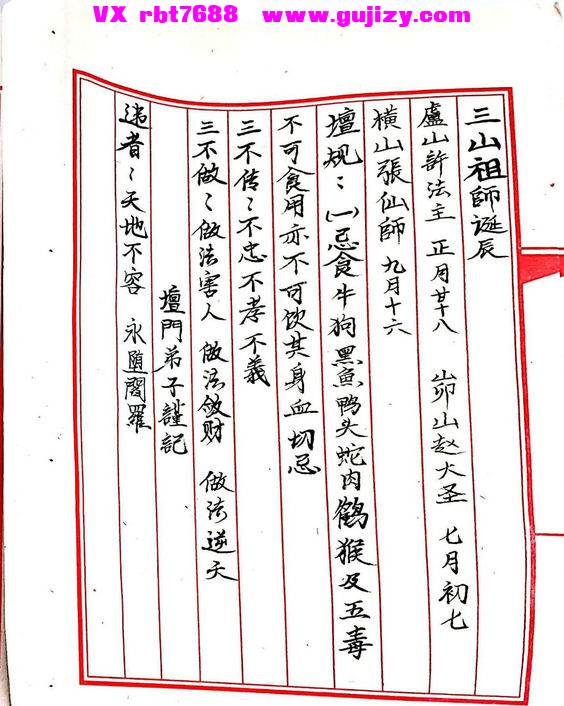 VX rbt7688 www.gujizy.com
三山祖師诞辰
盧山許法主 正月廿十八 峁山赵大圣 七月初七
横山張仙師 九月十六
壇规：(一)忌食牛狗黑魚鸭头蛇肉鶴猴及五毒
不可食用亦不可饮其身血切忌
三不传：不忠不孝不義
三不做：做法害人 做法敛财 做法逆天
壇門弟子謹記
违者：天地不容 永堕閻羅